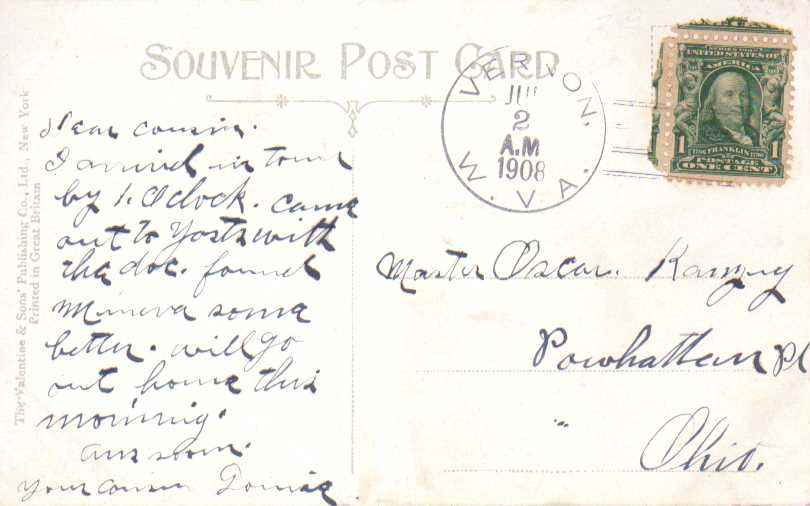 SOUVENIR POST CARD
VERNON.
W. VA.
JU
2
A.M
1908
SERIES 1902
UNITED STATES OF
AMERICA
FRANKLIN
POSTAGE
1 ONE CENT 1
The Valentine & Sons' Publishing Co., Ltd., New York
Printed in Great Britain
Dear cousin.
I arrived in town
by 1. O clock. came
out to Yosts with
the doc. found
Mineva some
better. will go
out home this
morning.
ans soon.
Your cousin
Master Oscar. Ramsey
Powhattan Pt
" Ohio.